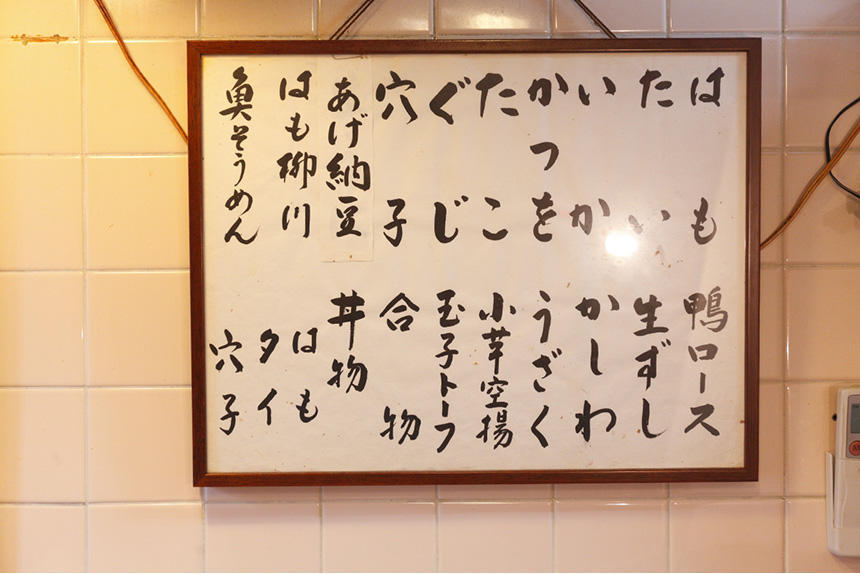 はも
たい
いか
かつを
たこ
ぐじ
穴子
あげ納豆
はも柳川
魚そうめん
鴨ロース
生ずし
かしわ
うざく
小芋空揚
玉子トーフ
合物
丼物
はも
タイ
穴子